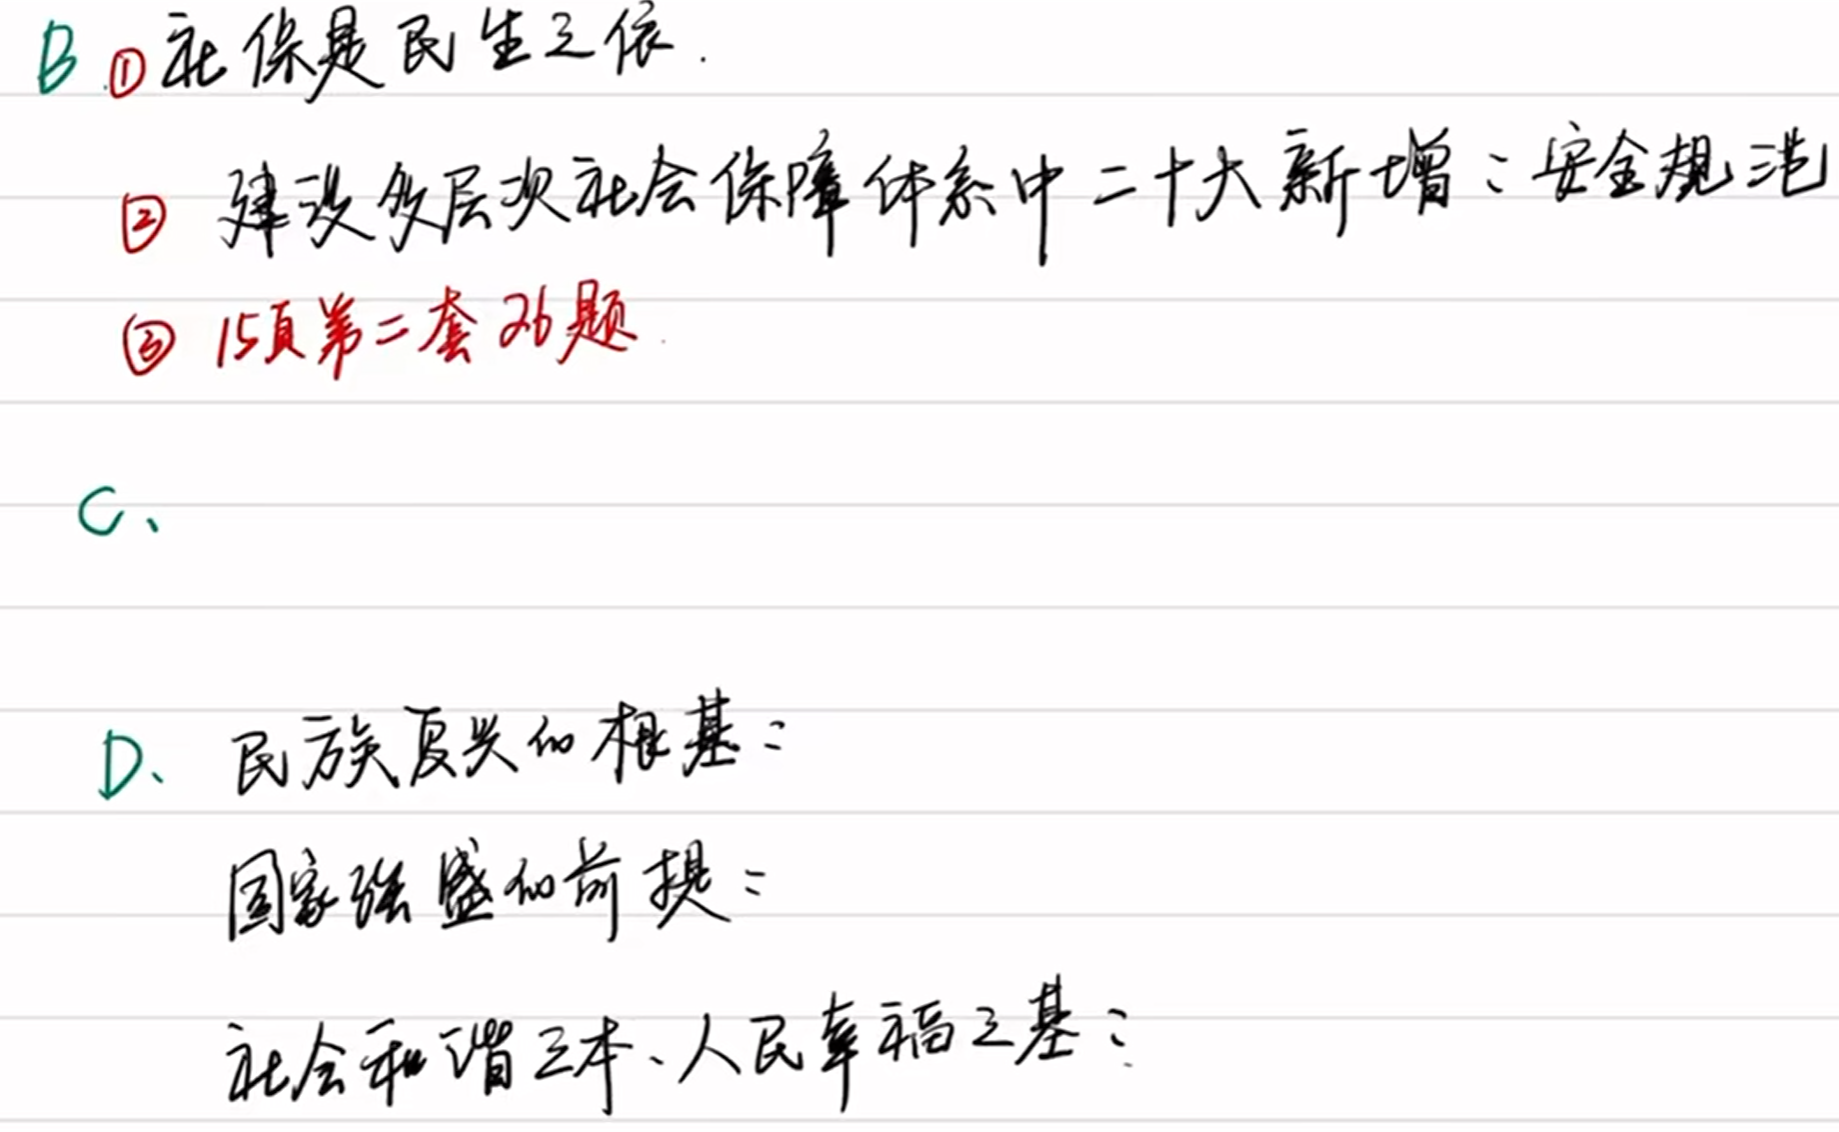 B ①社保是民生之依.
② 建设多层次社会保障体系中二十大新增：安全规范
③ 15页第二套26题
C、
D、民族复兴的根基：
国家强盛的前提：
社会和谐之本、人民幸福之基：